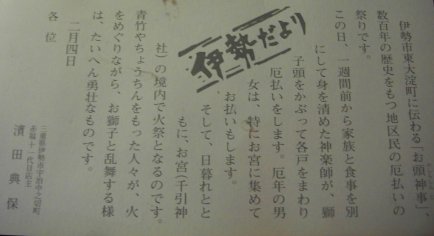 伊勢だより
伊勢市東大淀町に伝わる「お頭神事」、
数百年の歴史をもつ地区民の厄払いの
祭りです。
この日、一週間前から家族と食事を別
にして身を清めた神楽師が、獅
子頭をかぶって各戸をまわり
厄払いをします。厄年の男
女は、特にお宮に集めて
お払いもします。
そして、日暮れとと
もに、お宮(千引神
社)の境内で火祭となるのです。
青竹やちょうちんをもった人々が、火
をめぐりながら、お獅子と乱舞する様
は、たいへん勇壮なものです。
二月四日
各位
三重県伊勢市宇治中之切町
赤福十一代目店主
濱田典保